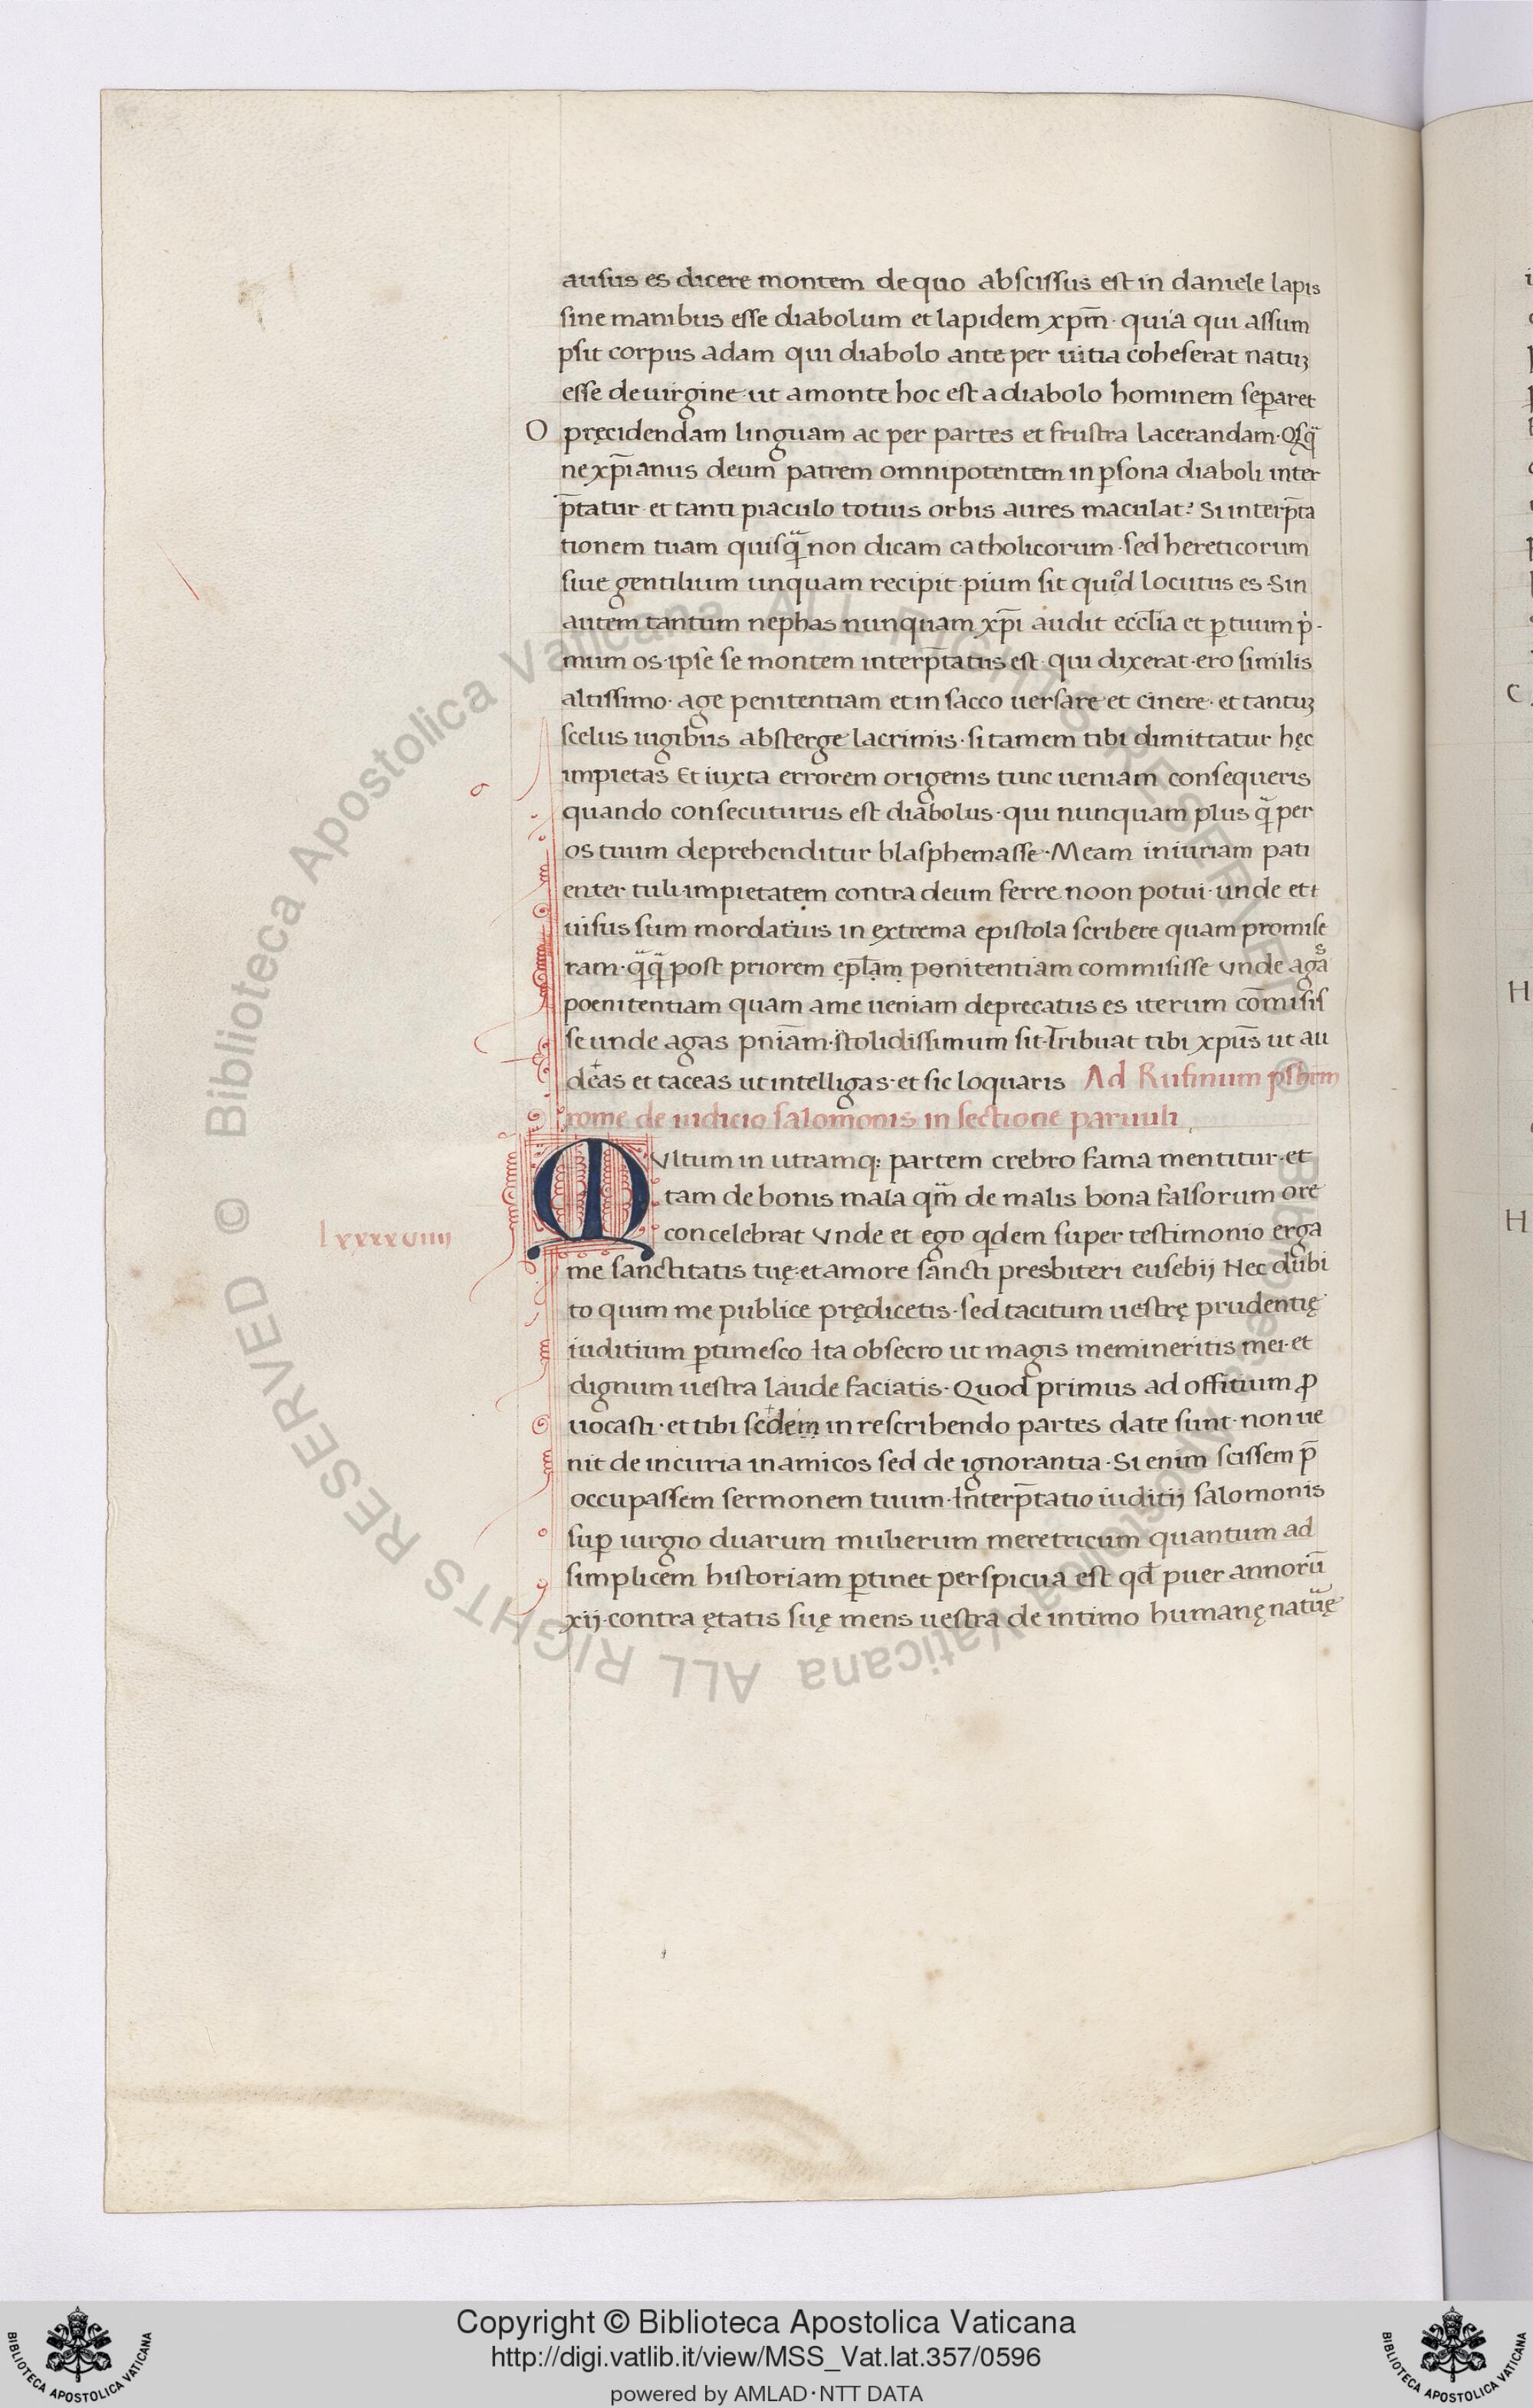 ausus es dicere montem de quo abscissus est in daniele lapis
sine manibus esse diabolum et lapidem xp̄m· quia qui assum
psit corpus adam qui diabolo ante per uitia coheserat natuꝫ
esse de uirgine· ut a monte hoc est a diabolo hominem seꝑaret
O pręcidendam linguam ac per partes et frustra lacerandam·
ne xp̄ianus deum patrem omnipotentem in ꝑsona diaboli inter
p̄tatur· et tanti piaculo totius orbis aures maculat? Si interp̄ta
tionem tuam quisq̄ non dicam catholicorum· sed hereticorum
siue gentilium unquam recipit· pium sit quod locutus es· Sin
autem tantum nephas nunquam xp̄i audit eccl̄ia et ꝑ tuum p̍
mum os· ipse se montem interp̄tatus est· qui dixerat· ero similis
altissimo· age penitentiam et in sacco uersare et cinere· et tantuꝫ
scelus iugibus absterge lacrimis· si tamem tibi dimittatur hęc
impietas Et iuxta errorem origenis tunc ueniam consequeris
quando consecuturus est diabolus· qui nunquam plus q̄ per
os tuum deprehenditur blasphemasse· Meam iniuriam pati
enter tuli· impietatem contra deum ferre noon potui· unde et t
uisus sum mordatius in extrema epistola scribere quam promise
ram· q̄q̄ post priorem ep̄lam penitentiam commisisse vnde agas
poenitentiam quam a me ueniam deprecatus es iterum com̄isis
se unde agas pn̄iam· stolidissimum sit· Tribuat tibi xpūs ut au
deas et taceas ut intelligas· et sic loquaris Ad Rufinum psbrm
rome de iudicio salomonis in sectione paruuli
MVltum in utramq; partem crebro fama mentitur· et
tam de bonis mala qm̄ de malis bona falsorum ore
concelebrat vnde et ego qdem super testimonio erga
lxxxxviiii
me sanctitatis tuę· et amore sancti presbiteri eusebij Nec dubi
to quim me publice prędicetis· sed tacitum uestrę prudentię
iuditium ꝑtimesco Ita obsecro ut magis memineritis mei· et
dignum uestra laude faciatis· Quod primus ad offitium ꝓ
uocasti· et tibi scdem in rescribendo partes date sunt· non ue
nit de incuria in amicos sed de ignorantia· Si enim scissem p̄
occupassem sermonem tuum· Interp̄tatio iuditij salomonis
suꝑ iurgio duarum mulierum meretricum quantum ad
simplicem historiam ꝑtinet perspicua est qđ puer annorū
xij· contra ętatis suę mens uestra de intimo humanę natuę
Biblioteca Apostolica Vaticana ALL RIGHTS RESERVED ©
Biblioteca Apostolica Vaticana ALL RIGHTS RESERVED ©
C
H
H
Copyright © Biblioteca Apostolica Vaticana
http://digi.vatlib.it/view/MSS_Vat.lat.357/0596
powered by AMLAD·NTT DATA
BIBLIOTECA APOSTOLICA VATICANA
BIBLIOTECA APOSTOLICA VATICANA